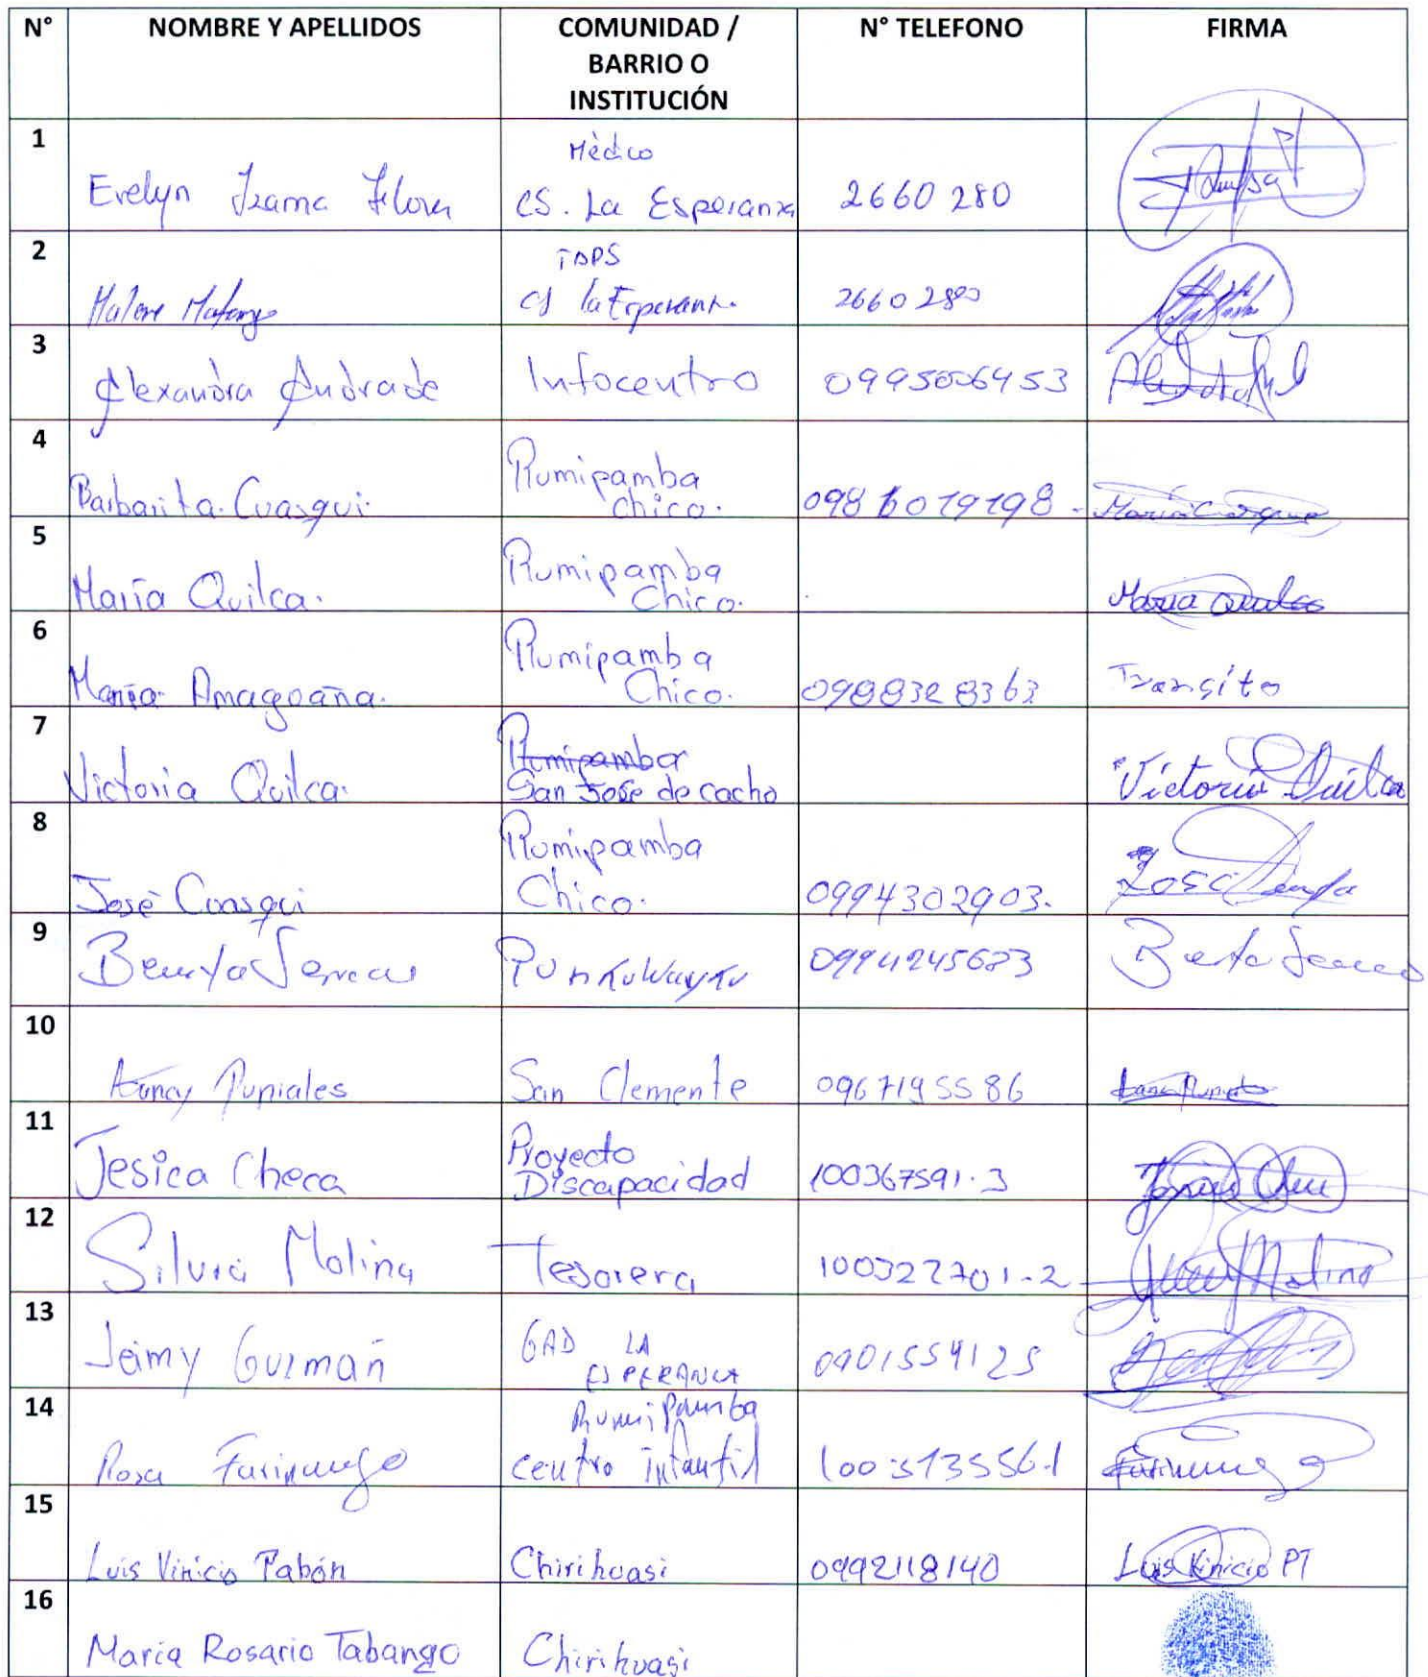 N° NOMBRE Y APELLIDOS COMUNIDAD / BARRIO O INSTITUCIÓN N° TELEFONO FIRMA
1 Evelyn Izama Flores Médico CS. La Esperanza 2660 280
2 TAPS CS la Esperanz. 2660 280
3 Alexandra Andrade Infocentro 0995006453
4 Barbarita Cuasqui. Rumipamba Chico. 0986019198
5 María Quilca. Rumipamba Chico. Maria Quilca
6 María Amaguaña. Rumipamba Chico. 0988328363 Transito
7 Victoria Quilca. Rumipamba San José de cacho Victoria Quilca
8 José Cuasqui Rumipamba Chico. 0994302903. José
9 PunKuWayKu 0994245623
10 Puniales San Clemente 0967195586
11 Jesica Checa Proyecto Discapacidad 100367591-3
12 Silvia Molina Tesorera 100322701-2 Molina
13 Jeimy Guzmán GAD LA ESPERANZA 0901559125
14 Rosa Farinango Rumipamba centro infantil 100313556-1 Farinango
15 Luis Vinicio Pabón Chirihuasi 0992118140 Luis Vinicio PT
16 María Rosario Tabango Chirihuasi